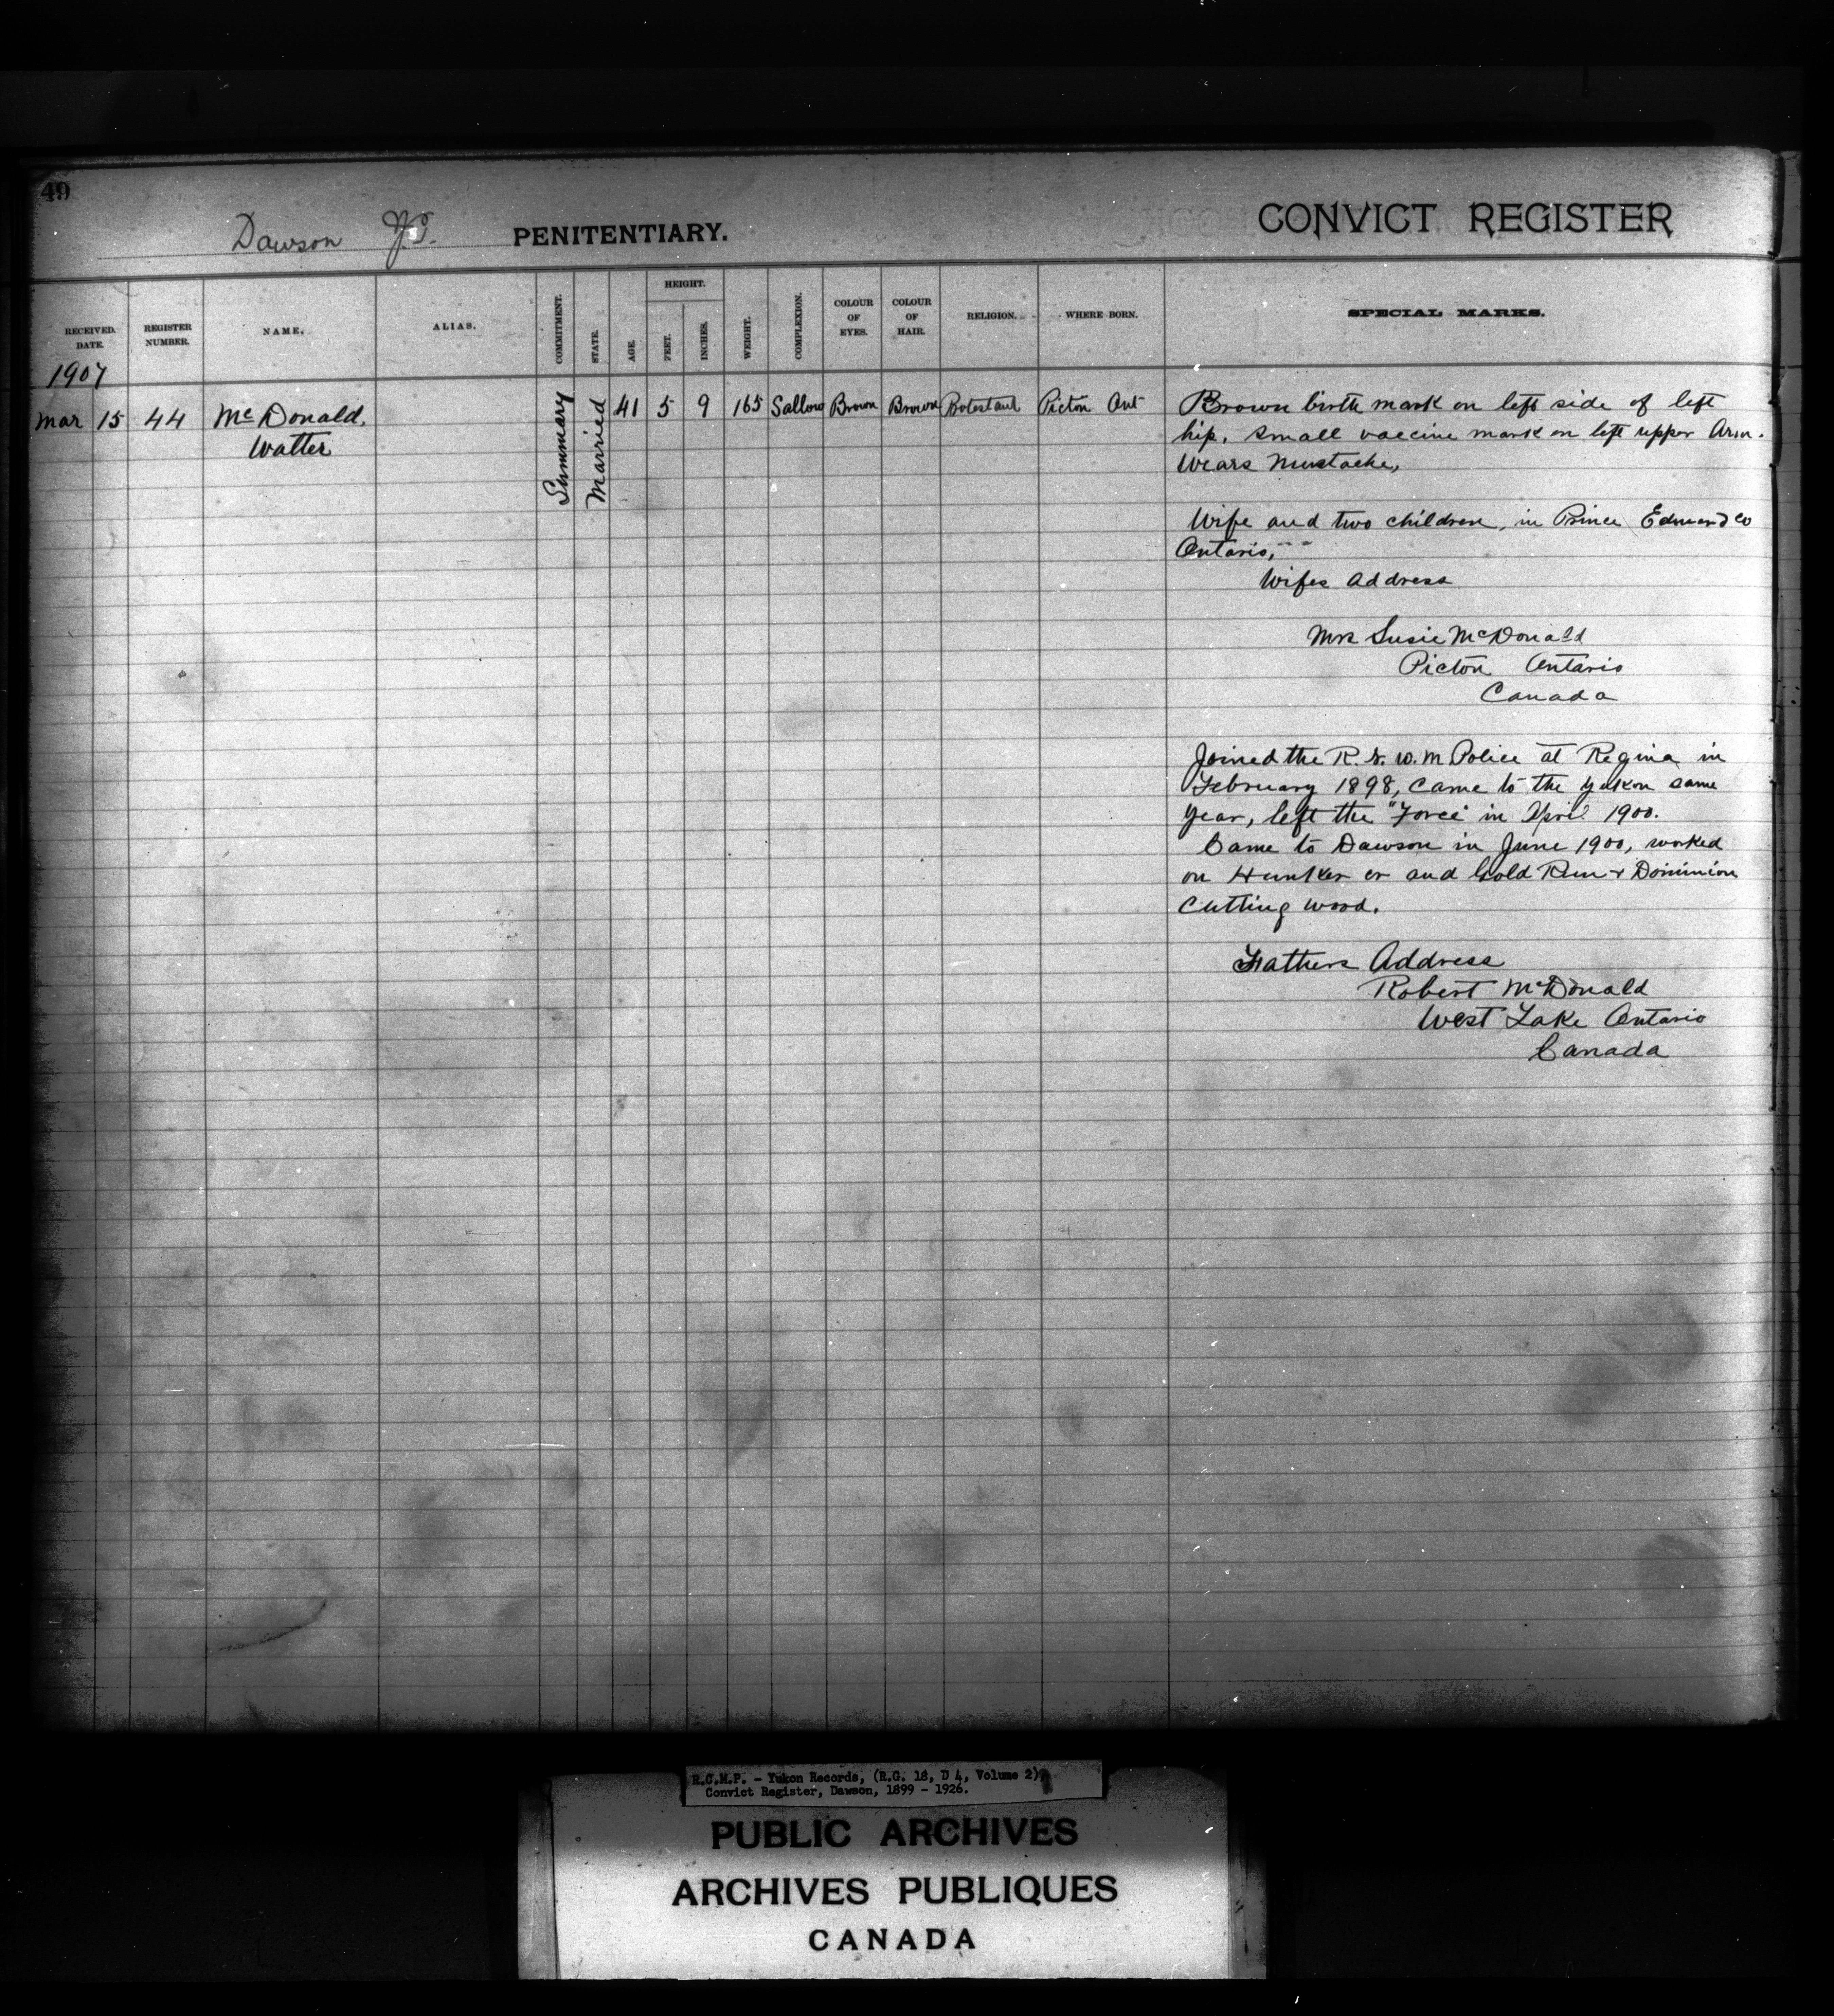 49
Dawson Y.T. PENITENTIARY. CONVICT REGISTER
RECEIVED. DATE. REGISTER NUMBER. NAME. ALIAS. COMMITMENT. STATE. AGE. HEIGHT. FEET. INCHES. WEIGHT. COMPLEXION. COLOUR OF EYES. COLOUR OF HAIR. RELIGION. WHERE BORN. SPECIAL MARKS.
1907
Mar 15 44 McDonald, Summary Married 41 5 9 165 Sallow Brown Brown Protestant Picton Ont Brown birth mark on left side of left
Walter hip, small vaccine mark on left upper Arm.
Wears Mustache,
Wife and two children, in Prince Edward Co
Ontario,
Wifes Address
Mrs Susie McDonald
Picton Ontario
Canada
Joined the R. N. W. M Police at Regina in
February 1898, came to the Yukon same
year, left the "Force" in April 1900.
Came to Dawson in June 1900, worked
on Hunker cr and Gold Run & Dominion
cutting wood.
Fathers Address
Robert McDonald
West Lake Ontario
Canada
R.C.M.P. - Yukon Records, (R.G. 18, D 4, Volume 2)
Convict Register, Dawson, 1899 - 1926.
PUBLIC ARCHIVES
ARCHIVES PUBLIQUES
CANADA